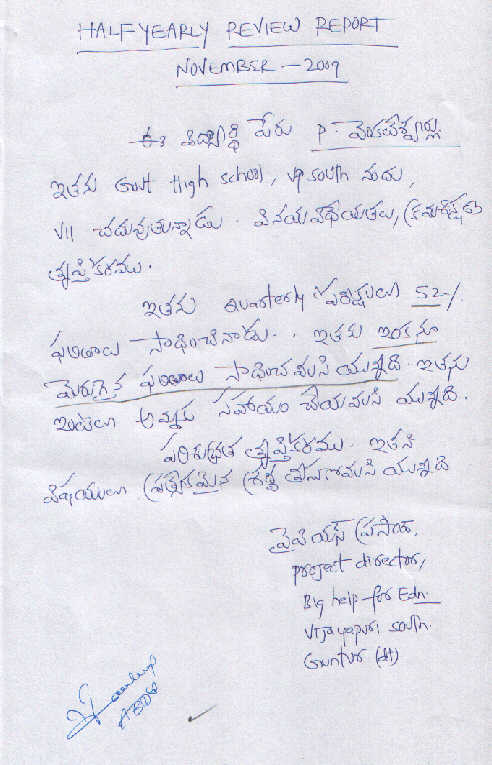 HALF YEARLY REVIEW REPORT
NOVEMBER - 2009
ఈ విద్యార్థి పేరు P. వెంకటేశ్వర్లు
ఇతను Govt High school, VP South నందు,
VII చదువుతున్నాడు. వినయవిధేయతలు, క్రమశిక్షణ
తృప్తికరము.
ఇతను Quarterly పరీక్షలు 52%
ఫలితాలు సాధించినాడు. ఇతను ఇంకనూ
మెరుగైన ఫలితాలు సాధించవలసి యున్నది. ఇతను
ఇంటిలో అమ్మకు సహాయం చేయవలసి యున్నది.
పరిశుభ్రత తృప్తికరము. ఇతని
విషయంలో ప్రత్యేకమైన శ్రద్ధ తీసుకోవలసి యున్నది
వైపియస్ ప్రసాద్,
project director,
Big help for Edn.
Vijayapuri south.
Guntur (dt)